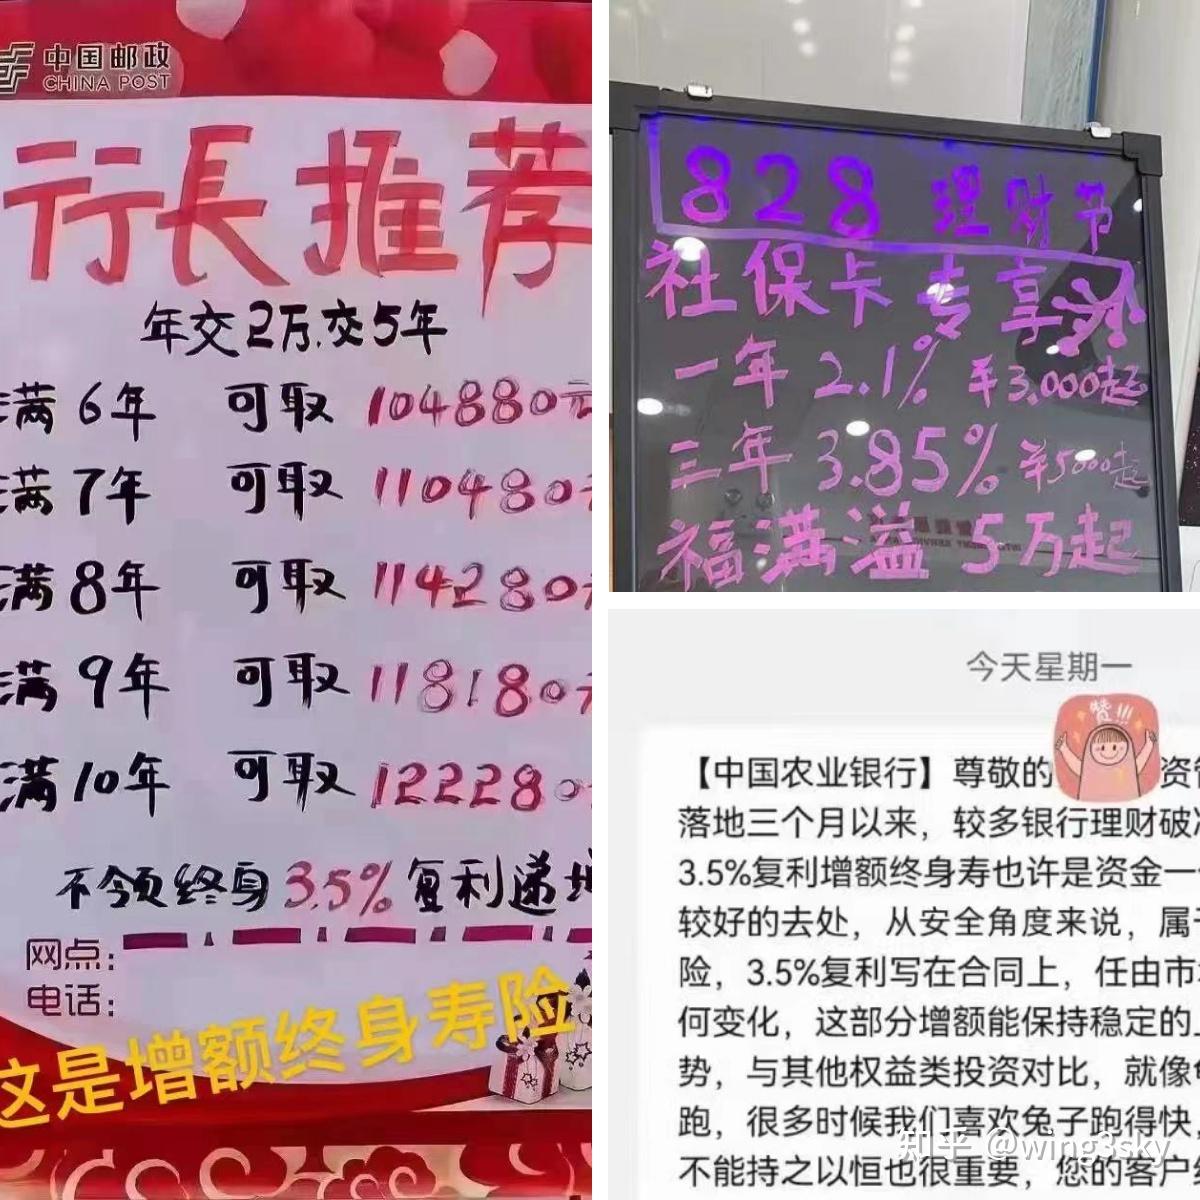 中国邮政
CHINA POST
行長推荐
年交2万.交5年
满6年 可取 104880元
满7年 可取 110480元
满8年 可取 114280元
满9年 可取 118180元
满10年 可取 122280
不领终身3.5%复利递增
网点：
电话：
这是增额终身寿险
828 理财节
社保卡专享
一年 2.1% ￥3,000起
三年 3.85% ￥5000起
福满溢 5万起
今天星期一
赞!!!
【中国农业银行】尊敬的 资管
落地三个月以来，较多银行理财破
3.5%复利增额终身寿也许是资金一
较好的去处，从安全角度来说，属
险，3.5%复利写在合同上，任由市
何变化，这部分增额能保持稳定的
势，与其他权益类投资对比，就像
跑，很多时候我们喜欢兔子跑得快，
不能持之以恒也很重要，您的客户
知乎 @wing3sky